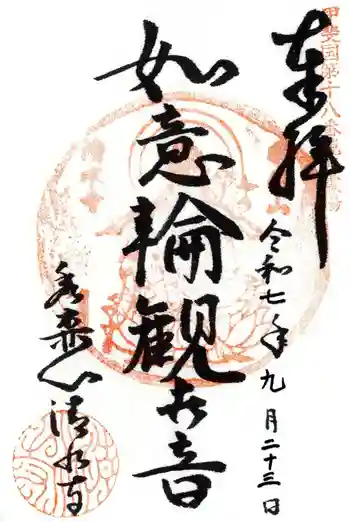 甲斐国第十八番
奉拝
令和七年九月二十三日
如意輪観世音
清水寺